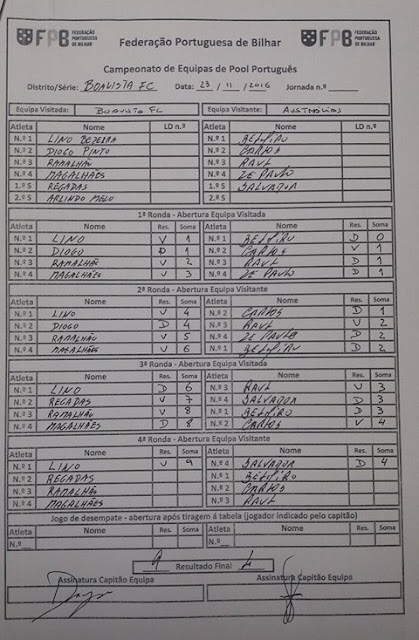 FPB FEDERAÇÃO PORTUGUESA DE BILHAR Federação Portuguesa de Bilhar FPB FEDERAÇÃO PORTUGUESA DE BILHAR
Campeonato de Equipas de Pool Português
Distrito/Série: BOAVISTA FC Data: 23 / 11 / 2016 Jornada n.º
Equipa Visitada: BOAVISTA FC Equipa Visitante:
Atleta Nome LD n.º Atleta Nome LD n.º
N.º 1 LINO BEZERRA N.º 1 BELMIRO
N.º 2 DIOGO PINTO N.º 2 CARLOS
N.º 3 RAMALHÃO N.º 3 RAUL
N.º 4 MAGALHÃES N.º 4 ZE PAULO
1.º S REGADAS 1.º S SALVADOR
2.º S ARLINDO MELO 2.º S
1ª Ronda - Abertura Equipa Visitada
Nome Res. Soma Nome Res. Soma
N.º 1 LINO V 1 N.º 1 BELMIRO D 0
N.º 2 DIOGO D 1 N.º 2 CARLOS V 1
N.º 3 RAMALHÃO V 2 N.º 3 RAUL D 1
N.º 4 MAGALHÃES V 3 N.º 4 ZE PAULO D 1
2ª Ronda - Abertura Equipa Visitante
Nome Res. Soma Nome Res. Soma
N.º 1 LINO V 4 N.º 2 CARLOS D 1
N.º 2 DIOGO D 4 N.º 3 RAUL V 2
N.º 3 RAMALHÃO V 5 N.º 4 ZE PAULO D 2
N.º 4 MAGALHÃES V 6 N.º 1 BELMIRO D 2
3ª Ronda - Abertura Equipa Visitada
Nome Res. Soma Nome Res. Soma
N.º 1 LINO D 6 N.º 3 RAUL V 3
N.º 2 REGADAS V 7 N.º 4 SALVADOR D 3
N.º 3 RAMALHÃO V 8 N.º 1 BELMIRO D 3
N.º 4 MAGALHÃES D 8 N.º 2 CARLOS V 4
4ª Ronda - Abertura Equipa Visitante
Nome Res. Soma Nome Res. Soma
N.º 1 LINO V 9 N.º 4 SALVADOR D 4
N.º 2 REGADAS N.º 1 BELMIRO
N.º 3 RAMALHÃO N.º 2 CARLOS
N.º 4 MAGALHAES N.º 3 RAUL
Jogo de desempate - abertura após tiragem á tabela (jogador indicado pelo capitão)
Atleta Nome Res. Soma Atleta Nome Res. Soma
N.º N.º
9 Resultado Final 4
Assinatura Capitão Equipa Assinatura Capitão Equipa